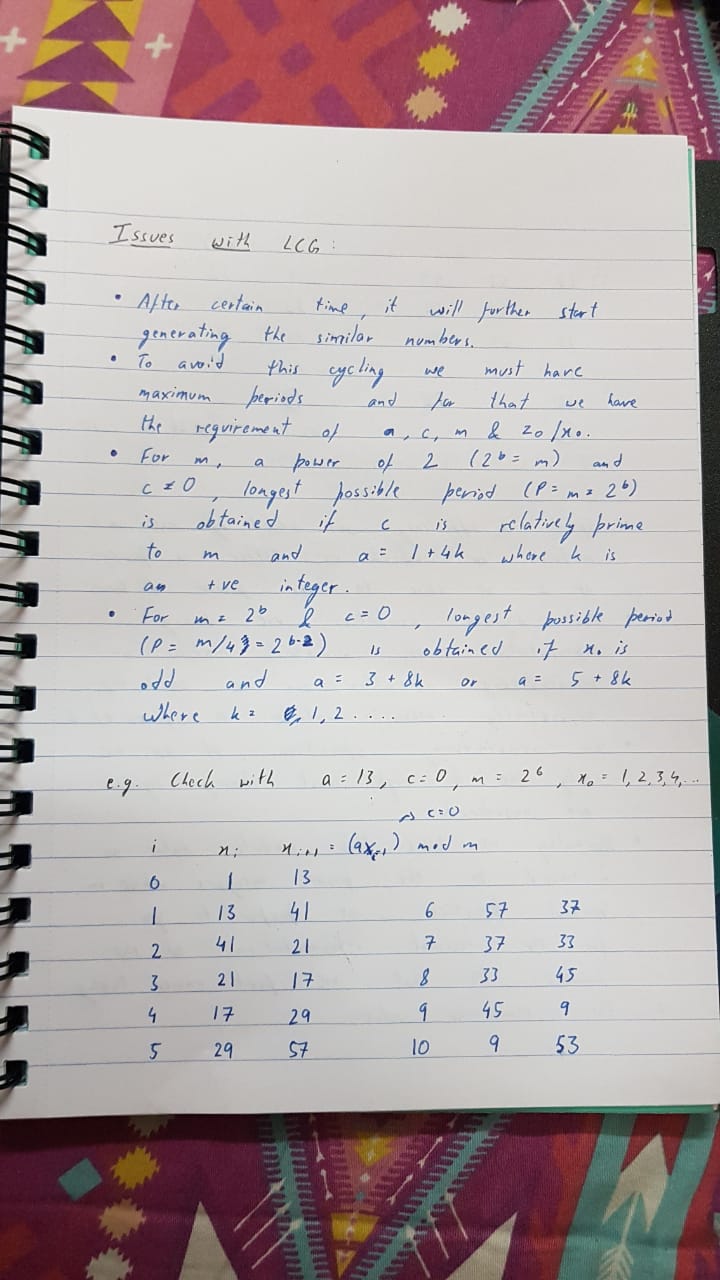 Issues with LCG :
• After certain time, it will further start
generating the similar numbers.
• To avoid this cycling we must have
maximum periods and for that we have
the requirement of a, c, m & z0/x0.
• For m, a power of 2 (2^b = m) and
c ≠ 0, longest possible period (P = m = 2^b)
is obtained if c is relatively prime
to m and a = 1 + 4k where k is
an +ve integer.
• For m = 2^b & c = 0, longest possible period
(P = m/4 = 2^b-2) is obtained if x0 is
odd and a = 3 + 8k or a = 5 + 8k
where k = 1, 2 ....
e.g. Check with a = 13, c = 0, m = 2^6, x0 = 1, 2, 3, 4, ...
c = 0
i xi xi+1 = (axi-1) mod m
0 1 13
1 13 41 6 57 37
2 41 21 7 37 33
3 21 17 8 33 45
4 17 29 9 45 9
5 29 57 10 9 53